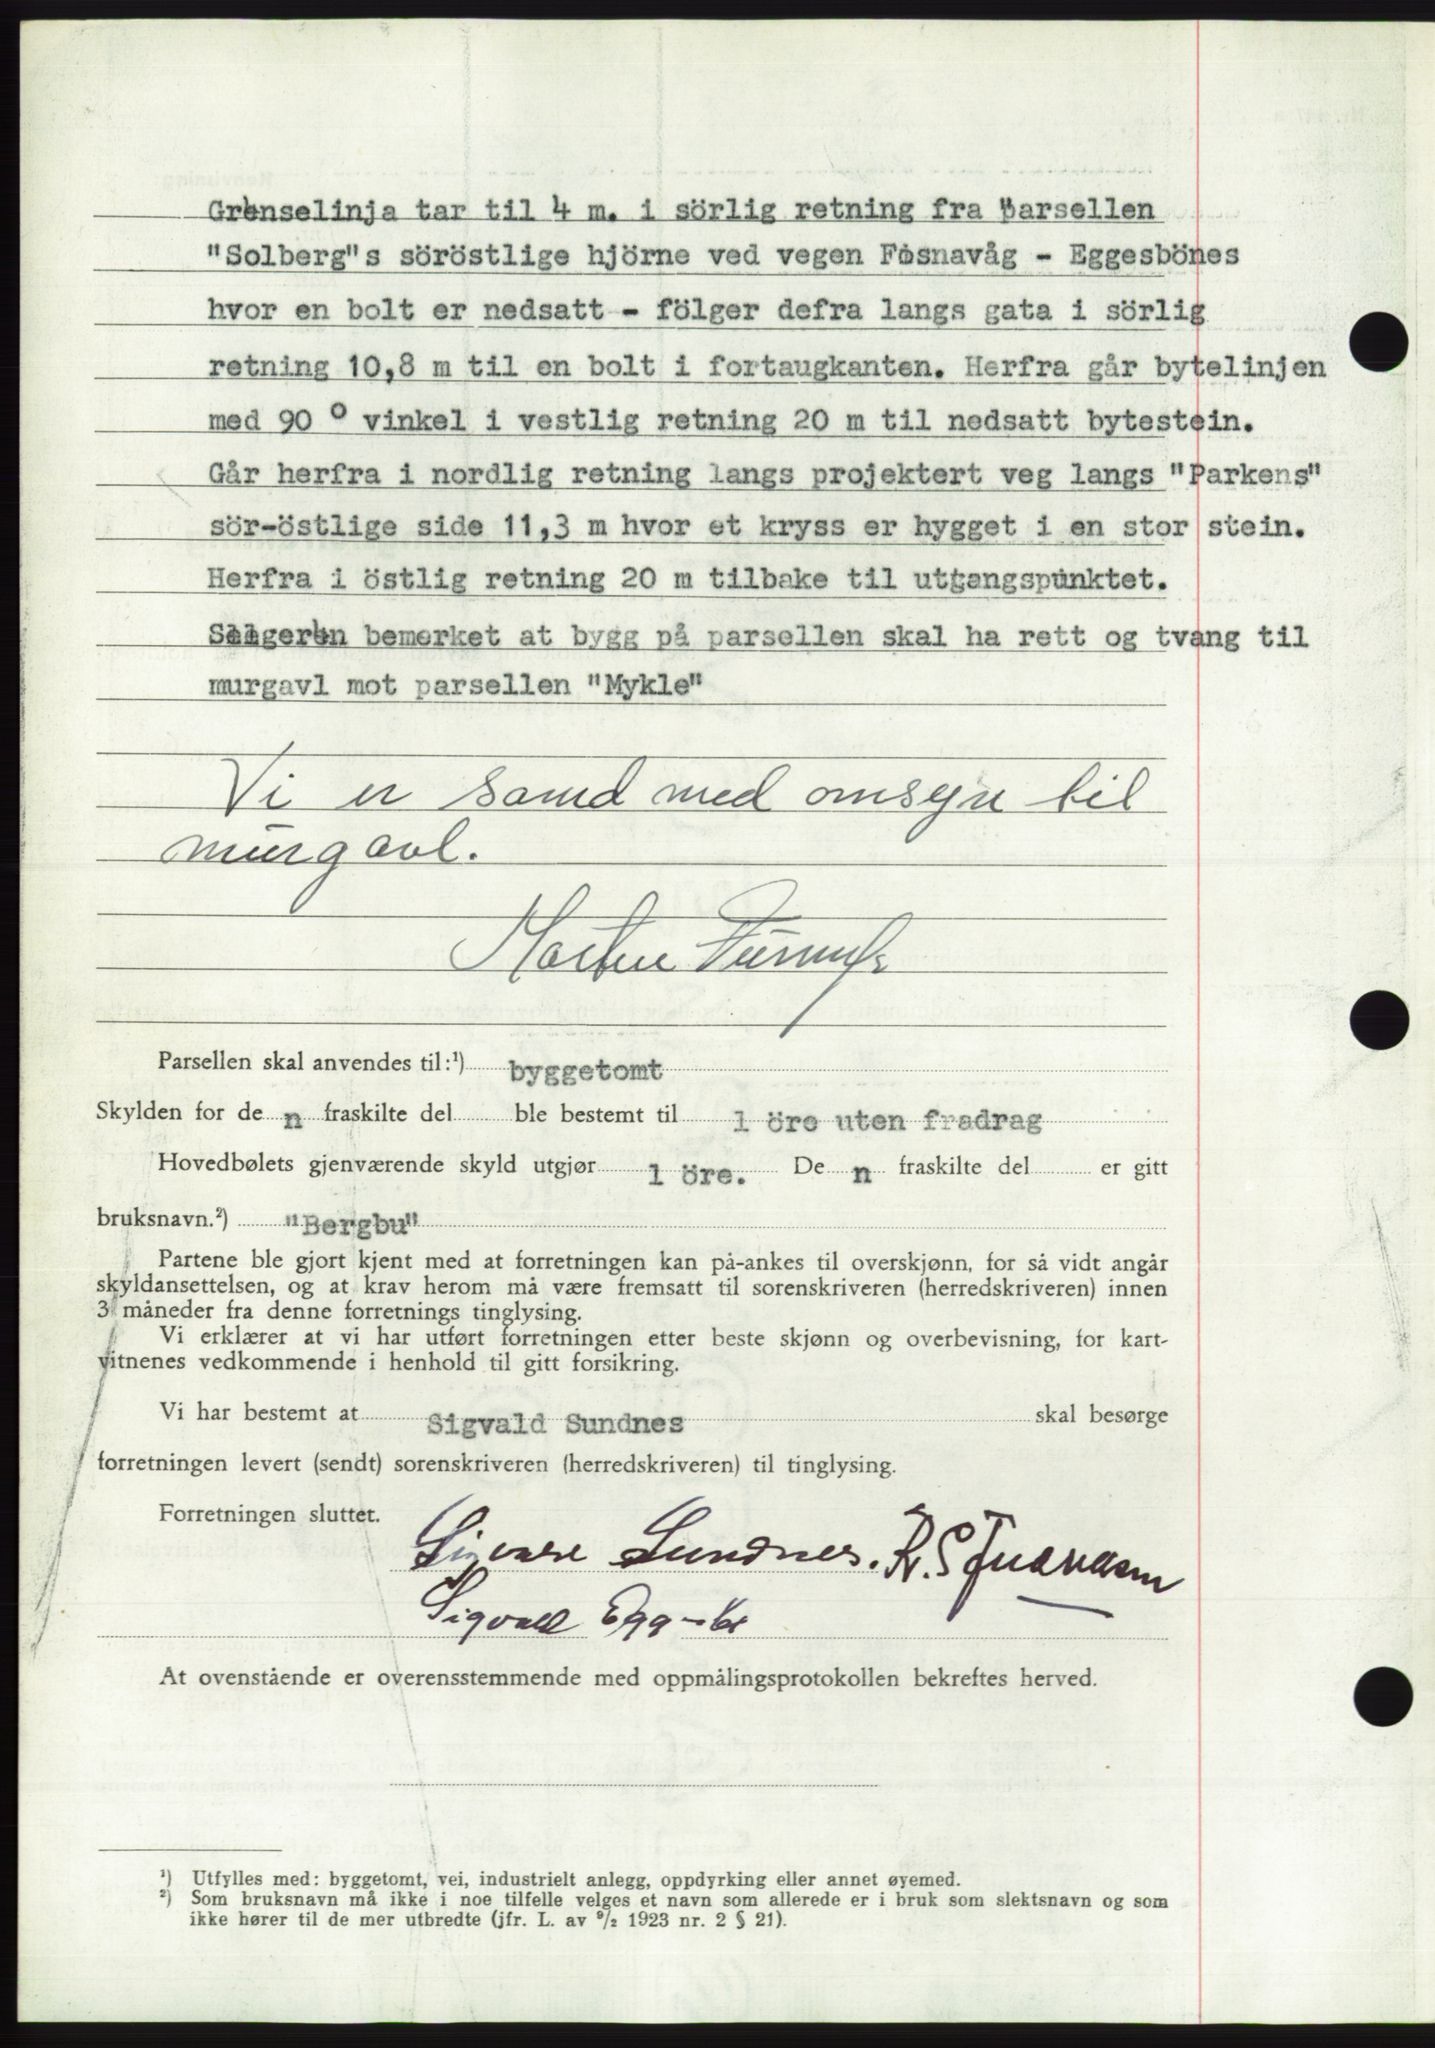 Grenselinja tar til 4 m. i sörlig retning fra parsellen
"Solberg"s söröstlige hjörne ved vegen Fosnavåg - Eggesbönes
hvor en bolt er nedsatt - fölger defra langs gata i sörlig
retning 10,8 m til en bolt i fortaugkanten. Herfra går bytelinjen
med 90 º vinkel i vestlig retning 20 m til nedsatt bytestein.
Går herfra i nordlig retning langs projektert veg langs "Parkens"
sör-östlige side 11,3 m hvor et kryss er hygget i en stor stein.
Herfra i östlig retning 20 m tilbake til utgangspunktet.
Selgeren bemerket at bygg på parsellen skal ha rett og tvang til
murgavl mot parsellen "Mykle"
Vi er samd med omsyn til
murgavl.
Parsellen skal anvendes til:¹) byggetomt
Skylden for de n fraskilte del ble bestemt til 1 öre uten fradrag
Hovedbølets gjenværende skyld utgjør 1 öre. De n fraskilte del er gitt
bruksnavn.²) "Bergbu"
Partene ble gjort kjent med at forretningen kan på-ankes til overskjønn, for så vidt angår
skyldansettelsen, og at krav herom må være fremsatt til sorenskriveren (herredskriveren) innen
3 måneder fra denne forretnings tinglysing.
Vi erklærer at vi har utført forretningen etter beste skjønn og overbevisning, for kart-
vitnenes vedkommende i henhold til gitt forsikring.
Vi har bestemt at Sigvald Sundnes skal besørge
forretningen levert (sendt) sorenskriveren (herredskriveren) til tinglysing.
Forretningen sluttet.
Sigvald Sundnes. R. S.
Sigvald
At ovenstående er overensstemmende med oppmålingsprotokollen bekreftes herved.
¹) Utfylles med: byggetomt, vei, industrielt anlegg, oppdyrking eller annet øyemed.
²) Som bruksnavn må ikke i noe tilfelle velges et navn som allerede er i bruk som slektsnavn og som
ikke hører til de mer utbredte (jfr. L. av ⁹/₂ 1923 nr. 2 § 21).